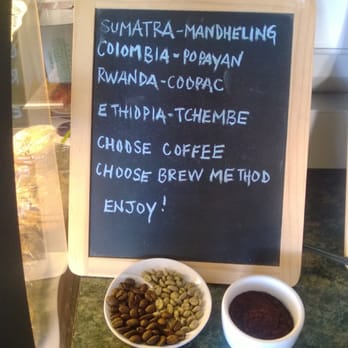 SUMATRA-MANDHELING
COlOMBIA-POPAYAN
RWANDA-COOPAC
ETHIOPIA-TCHEMBE
CHOOSE COFFEE
CHOOSE BREW METHOD
ENJOY!